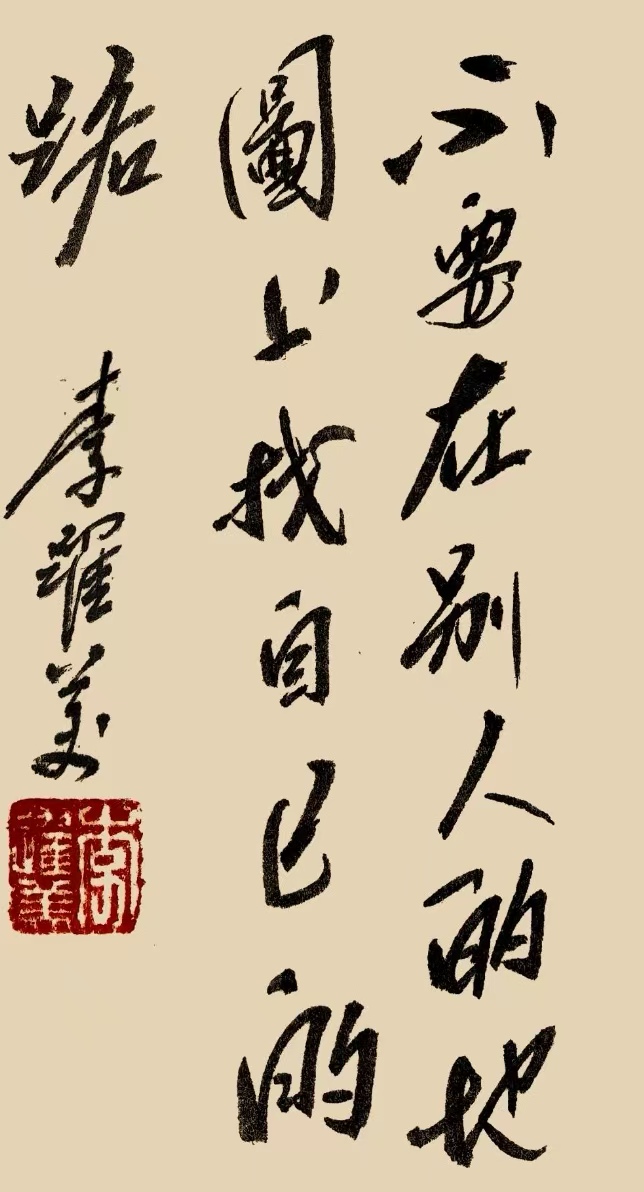 不要在别人的地
圖上找自己的
路
李躍
李躍